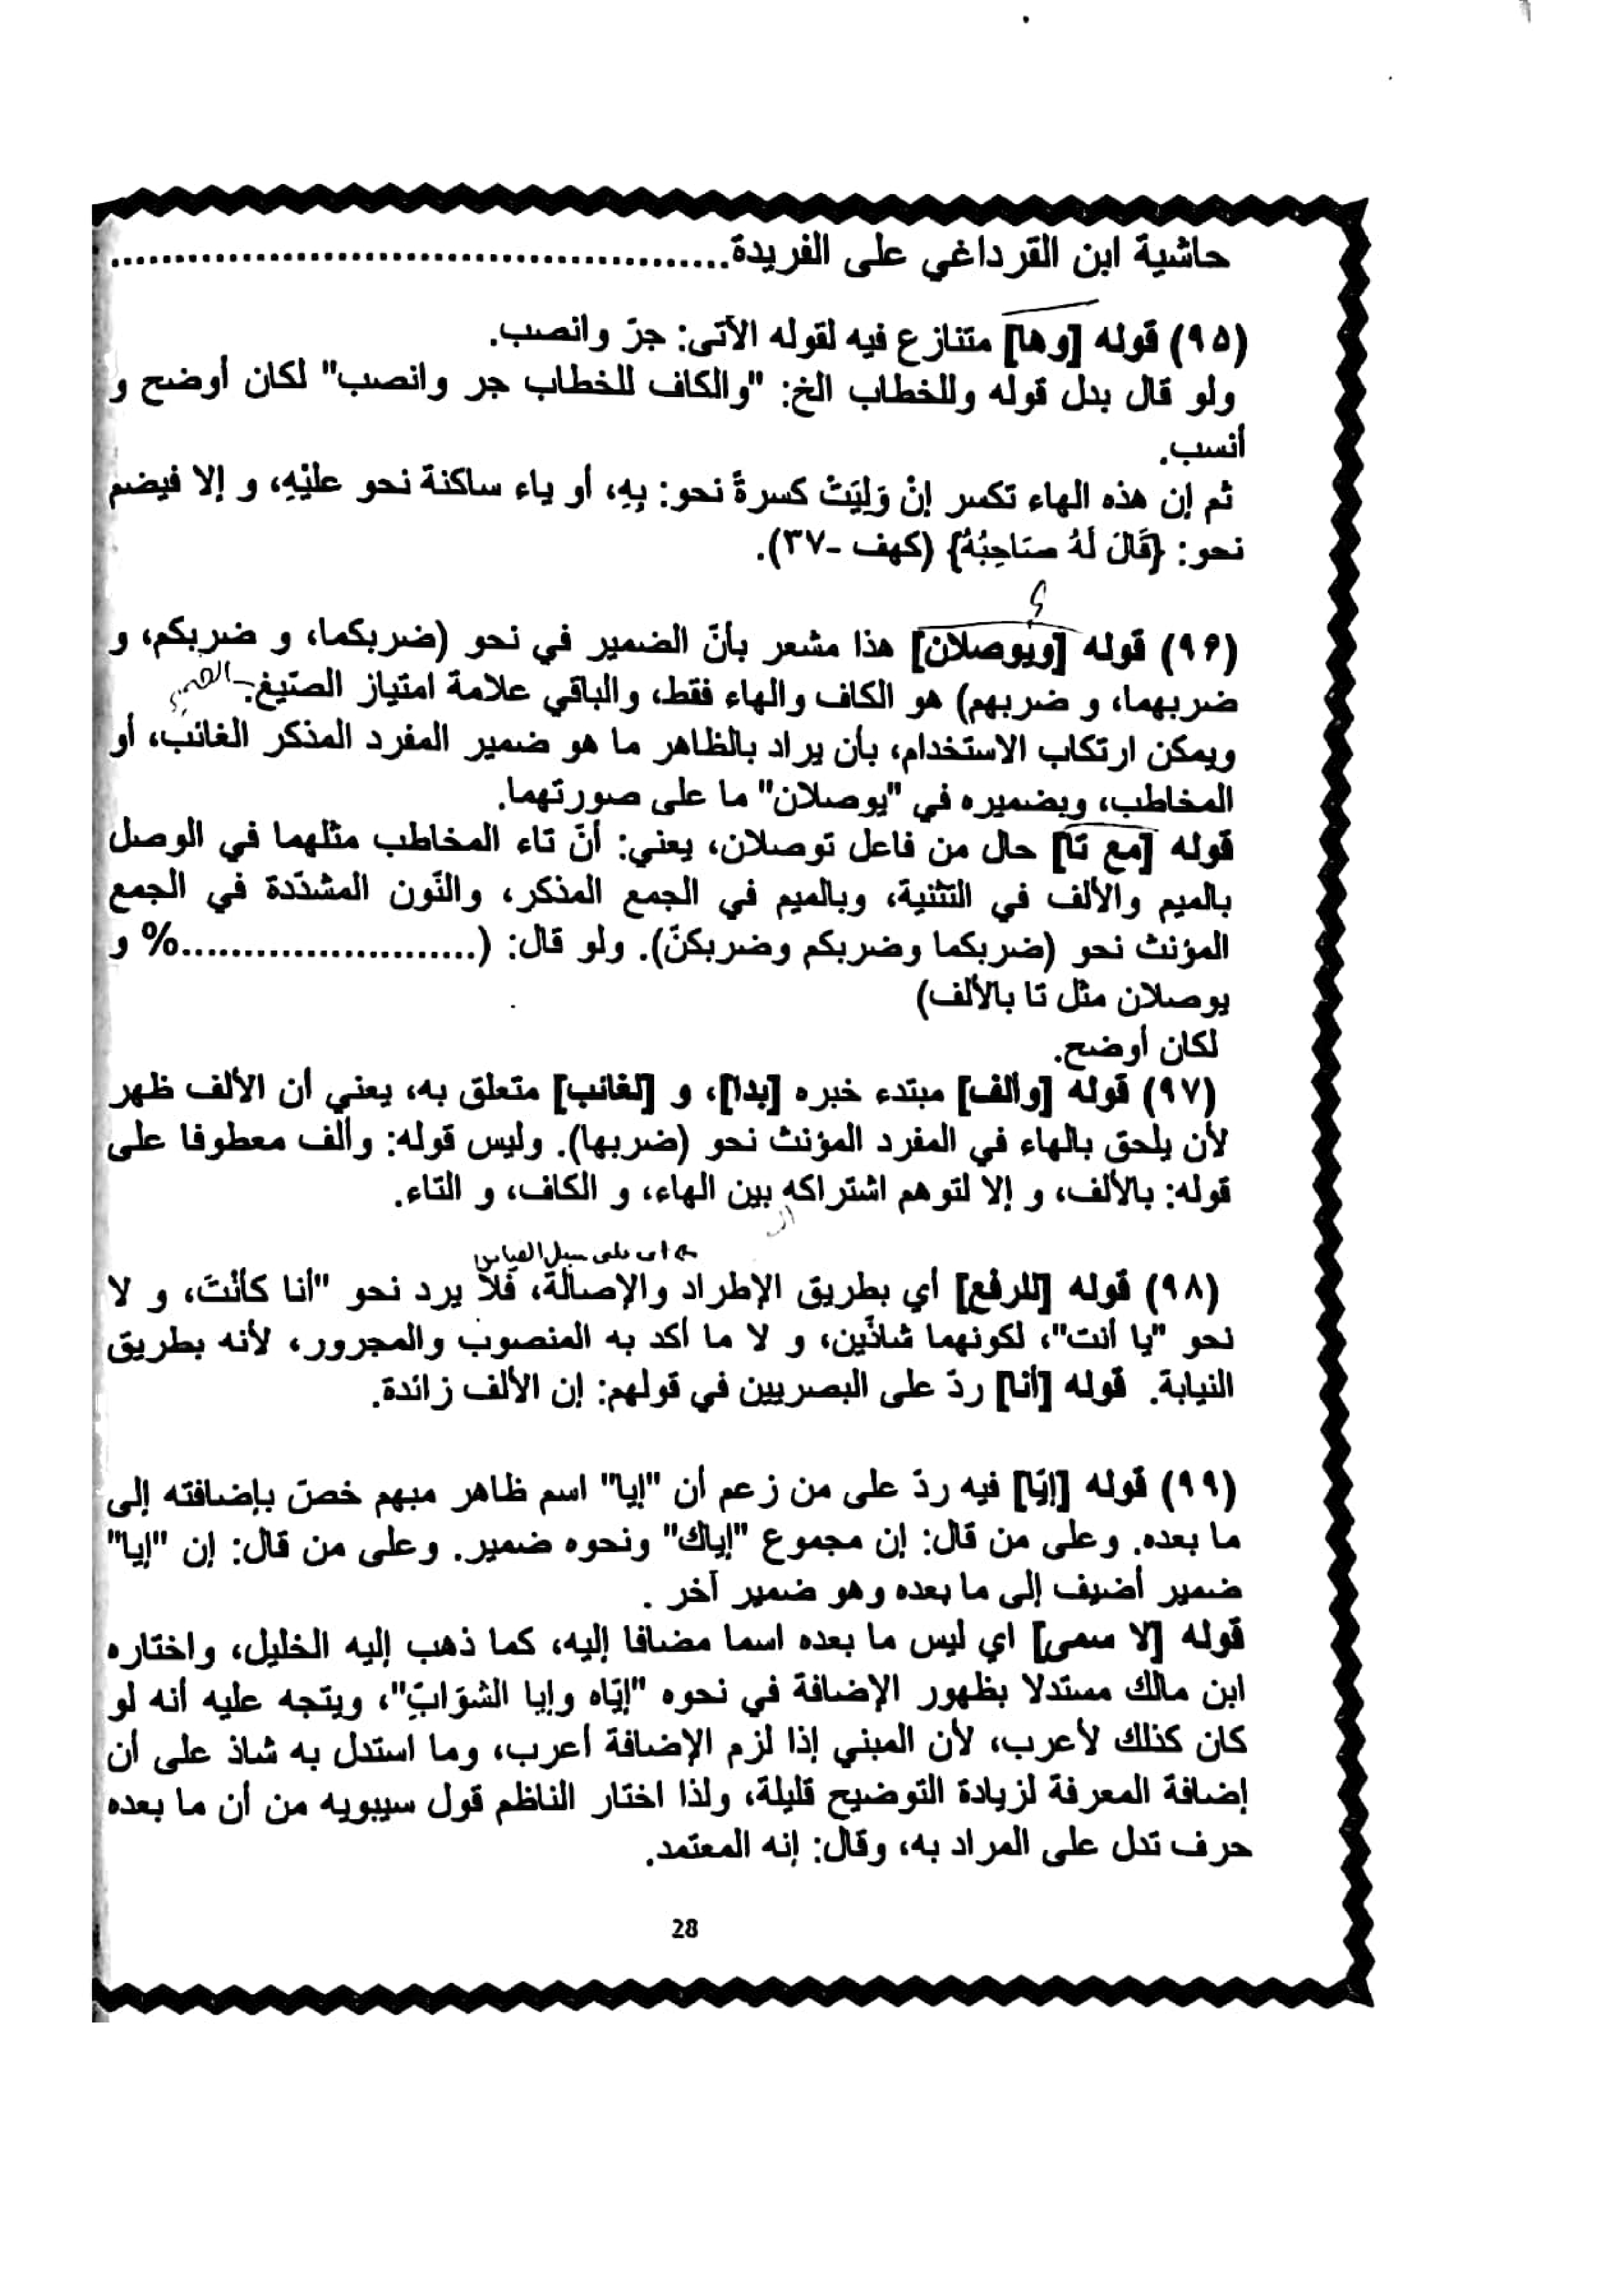 حاشية ابن القرداغي على الفريدة................................................
(۹۵) قوله [وها] متنازع فيه لقوله الآتى: جرّ وانصب.
ولو قال بدل قوله وللخطاب الخ: "والكاف للخطاب جر وانصب" لكان أوضح و
أنسب.
ثم إن هذه الهاء تكسر إنْ وَلِيَتْ كسرةً نحو: بِهِ، أو ياء ساكنة نحو عليْهِ، و إلا فيضم
نحو: {قَالَ لَهُ صَاحِبُهُ} (كهف -٣٧).
(۹۶) قوله [ويوصلان] هذا مشعر بأنّ الضمير في نحو (ضربكما، و ضربكم، و
ضربهما، و ضربهم) هو الكاف والهاء فقط، والباقي علامة امتياز الصّيغ.
ويمكن ارتكاب الاستخدام، بأن يراد بالظاهر ما هو ضمير المفرد المذكر الغائب، أو
المخاطب، وبضميره في "يوصلان" ما على صورتهما.
قوله [مع تا] حال من فاعل توصلان، يعني: أنّ تاء المخاطب مثلهما في الوصل
بالميم والألف في التثنية، وبالميم في الجمع المذكر، والنّون المشدّدة في الجمع
المؤنث نحو (ضربكما وضربكم وضربكنّ). ولو قال: (........................% و
يوصلان مثل تا بالألف)
لكان أوضح.
(۹۷) قوله [وألف] مبتدء خبره [بدا]، و [لغائب] متعلق به، يعني أن الألف ظهر
لأن يلحق بالهاء في المفرد المؤنث نحو (ضربها). وليس قوله: وألف معطوفا على
قوله: بالألف، و إلا لتوهم اشتراكه بين الهاء، و الكاف، و التاء.
اى على سبيل القياس
(۹۸) قوله [للرفع] أي بطريق الإطراد والإصالة، فلا يرد نحو "أنا كأنْتَ، و لا
نحو "يا أنت"، لكونهما شاذّين، و لا ما أكد به المنصوب والمجرور، لأنه بطريق
النيابة. قوله [أنا] ردّ على البصريين في قولهم: إن الألف زائدة.
(۹۹) قوله [إيّا] فيه ردّ على من زعم أن "إيا" اسم ظاهر مبهم خصّ بإضافته إلى
ما بعده. وعلى من قال: إن مجموع "إياك" ونحوه ضمير. وعلى من قال: إن "إيا"
ضمير أضيف إلى ما بعده وهو ضمير آخر .
قوله [لا سمى] اي ليس ما بعده اسما مضافا إليه، كما ذهب إليه الخليل، واختاره
ابن مالك مستدلا بظهور الإضافة في نحوه "إيّاه وإيا الشوَابِّ"، ويتجه عليه أنه لو
كان كذلك لأعرب، لأن المبني إذا لزم الإضافة أعرب، وما استدل به شاذ على أن
إضافة المعرفة لزيادة التوضيح قليلة، ولذا اختار الناظم قول سيبويه من أن ما بعده
حرف تدل على المراد به، وقال: إنه المعتمد.
28